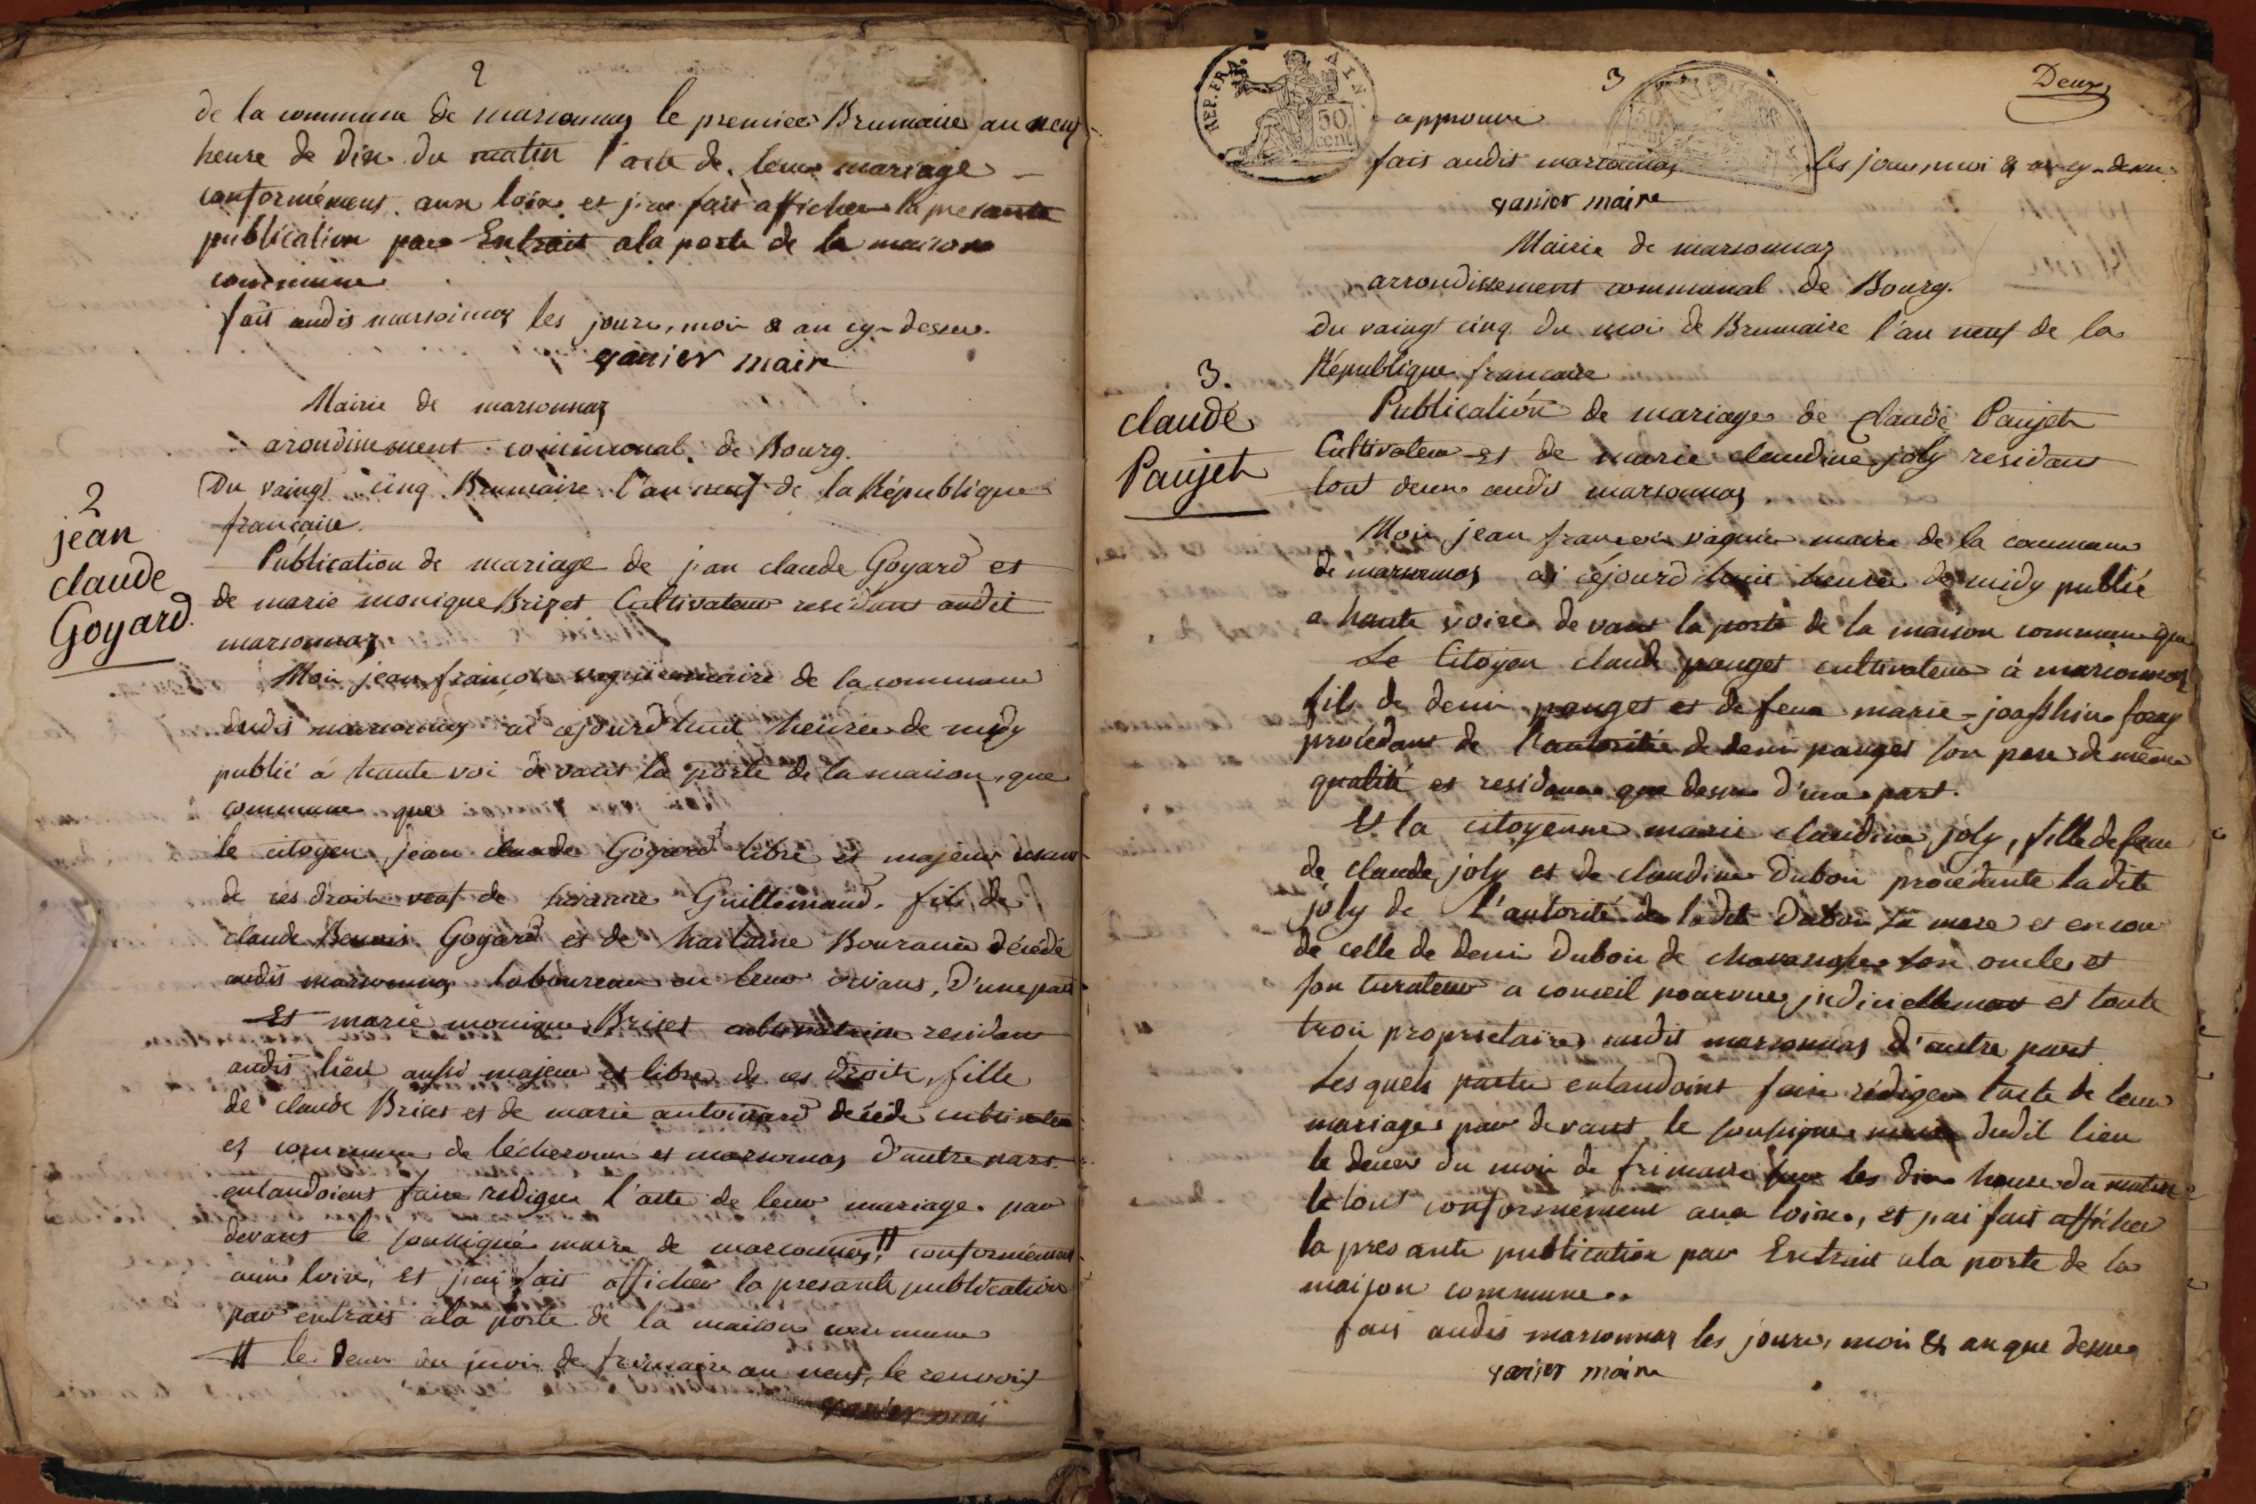 2
de la commune de marsonnas le premier Brumaire an neuf
heure de dix du matin l'acte de leur mariage
conformément aux loix et j'ai fait afficher la presante
publication par Extrait a la porte de la maison
commune
fait audit marsonnas les jour, moi & an cy-dessus.
vanier maire
Mairie de marsonnas
arondissement communal de Bourg.
2
jean
claude
Goyard
Du vaingt cinq Brumaire l'an neuf de la République
francaise.
Publication de mariage de jean claude Goyard et
de marie monique Brizet Cultivateur residant audit
marsonnas
Moi jean francois vagnier maire de la commune
dudit marsonnas ai cejourd'huit heure de midy
publié a haute voi devant la porte de la maison, que
commune que
le citoyen jean claude Goyard libre et majeur usant
de ses droit veuf de Guillemaud. fils de
claude Goyard et de décédé
audit marsonnas laboureur en leur vivant, d'une part
Et marie monique Briset residant
audit lieu aussi majeur et libre de ses droits, fille
de claude Briset et de marie antoinard décédé cultivateur
et commune de lécheroux et marsonnas d'autre part.
entandoient faire rediger l'acte de leur mariage. par
devant le soussigné maire de marsonnas, # conformément
aux loix, Et j'ai fait afficher la presante publication
par extrait a la porte de la maison commune
# le deux du moi de frimaire an neuf, le renvoit
vanier mai
REP. FRA.
50
cent.
3
Deux
approuvé
fait audit marsonnas les jour, moi & an cy-dessus
vanier maire
Mairie de marsonnas
arrondissement communal de Bourg.
Du vaingt cinq du moi de Brumaire l'an neuf de la
République francaise
3.
claude
Paujet
Publication de mariage de Claude Paujet
Cultivateur et de marie claudine joly residant
tout deux audit marsonnas
Moi jean francois vagnier maire de la commune
de marsonnas ai cejourd'huit heure de midy publié
a haute voix devant la porte de la maison commune que
Le Citoyen claude pauget cultivateur à marsonnas
fils de deni pauget et de feue marie-joasphine foray
procédant de l'autorité de deni pauget son pere de même
qualité et residance que dessus d'une part.
Et la citoyenne marie claudine joly, fille de feu
de claude joly et de claudine Duboi procédante ladite
joly de l'autorité de ladite Duboi sa mere et encore
de celle de deni Duboi de son oncle et
son curateur a conseil pourvue judiciellement et toute
troi propriétaire audit marsonnas d'autre part
Lesquels partie entandoint faire rédiger l'acte de leur
mariage par devant le soussigné maire dudit lieu
le deux du moi de frimaire sur les dix heure du matin
le tout conformément aux loix, et j'ai fait afficher
la presante publication par Extrait a la porte de la
maison commune..
fait audit marsonnas les jour, moi & an que dessus
vanier maire